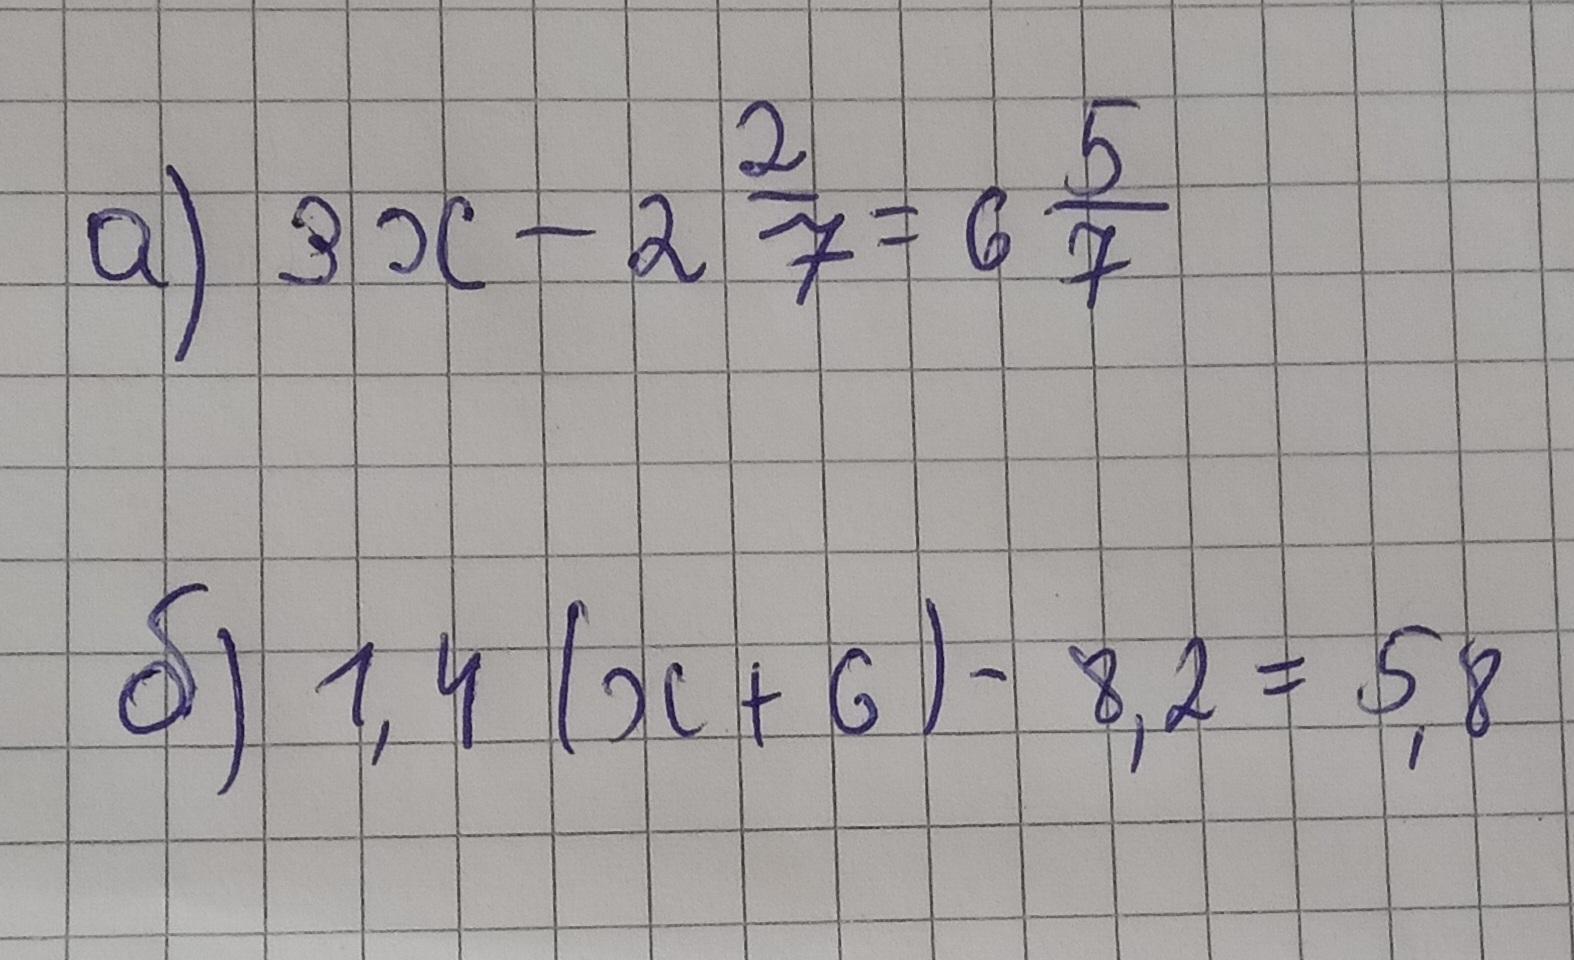 а) 3x - 2 2/7 = 6 5/7
б) 1,4 (x + 6) - 8,2 = 5,8